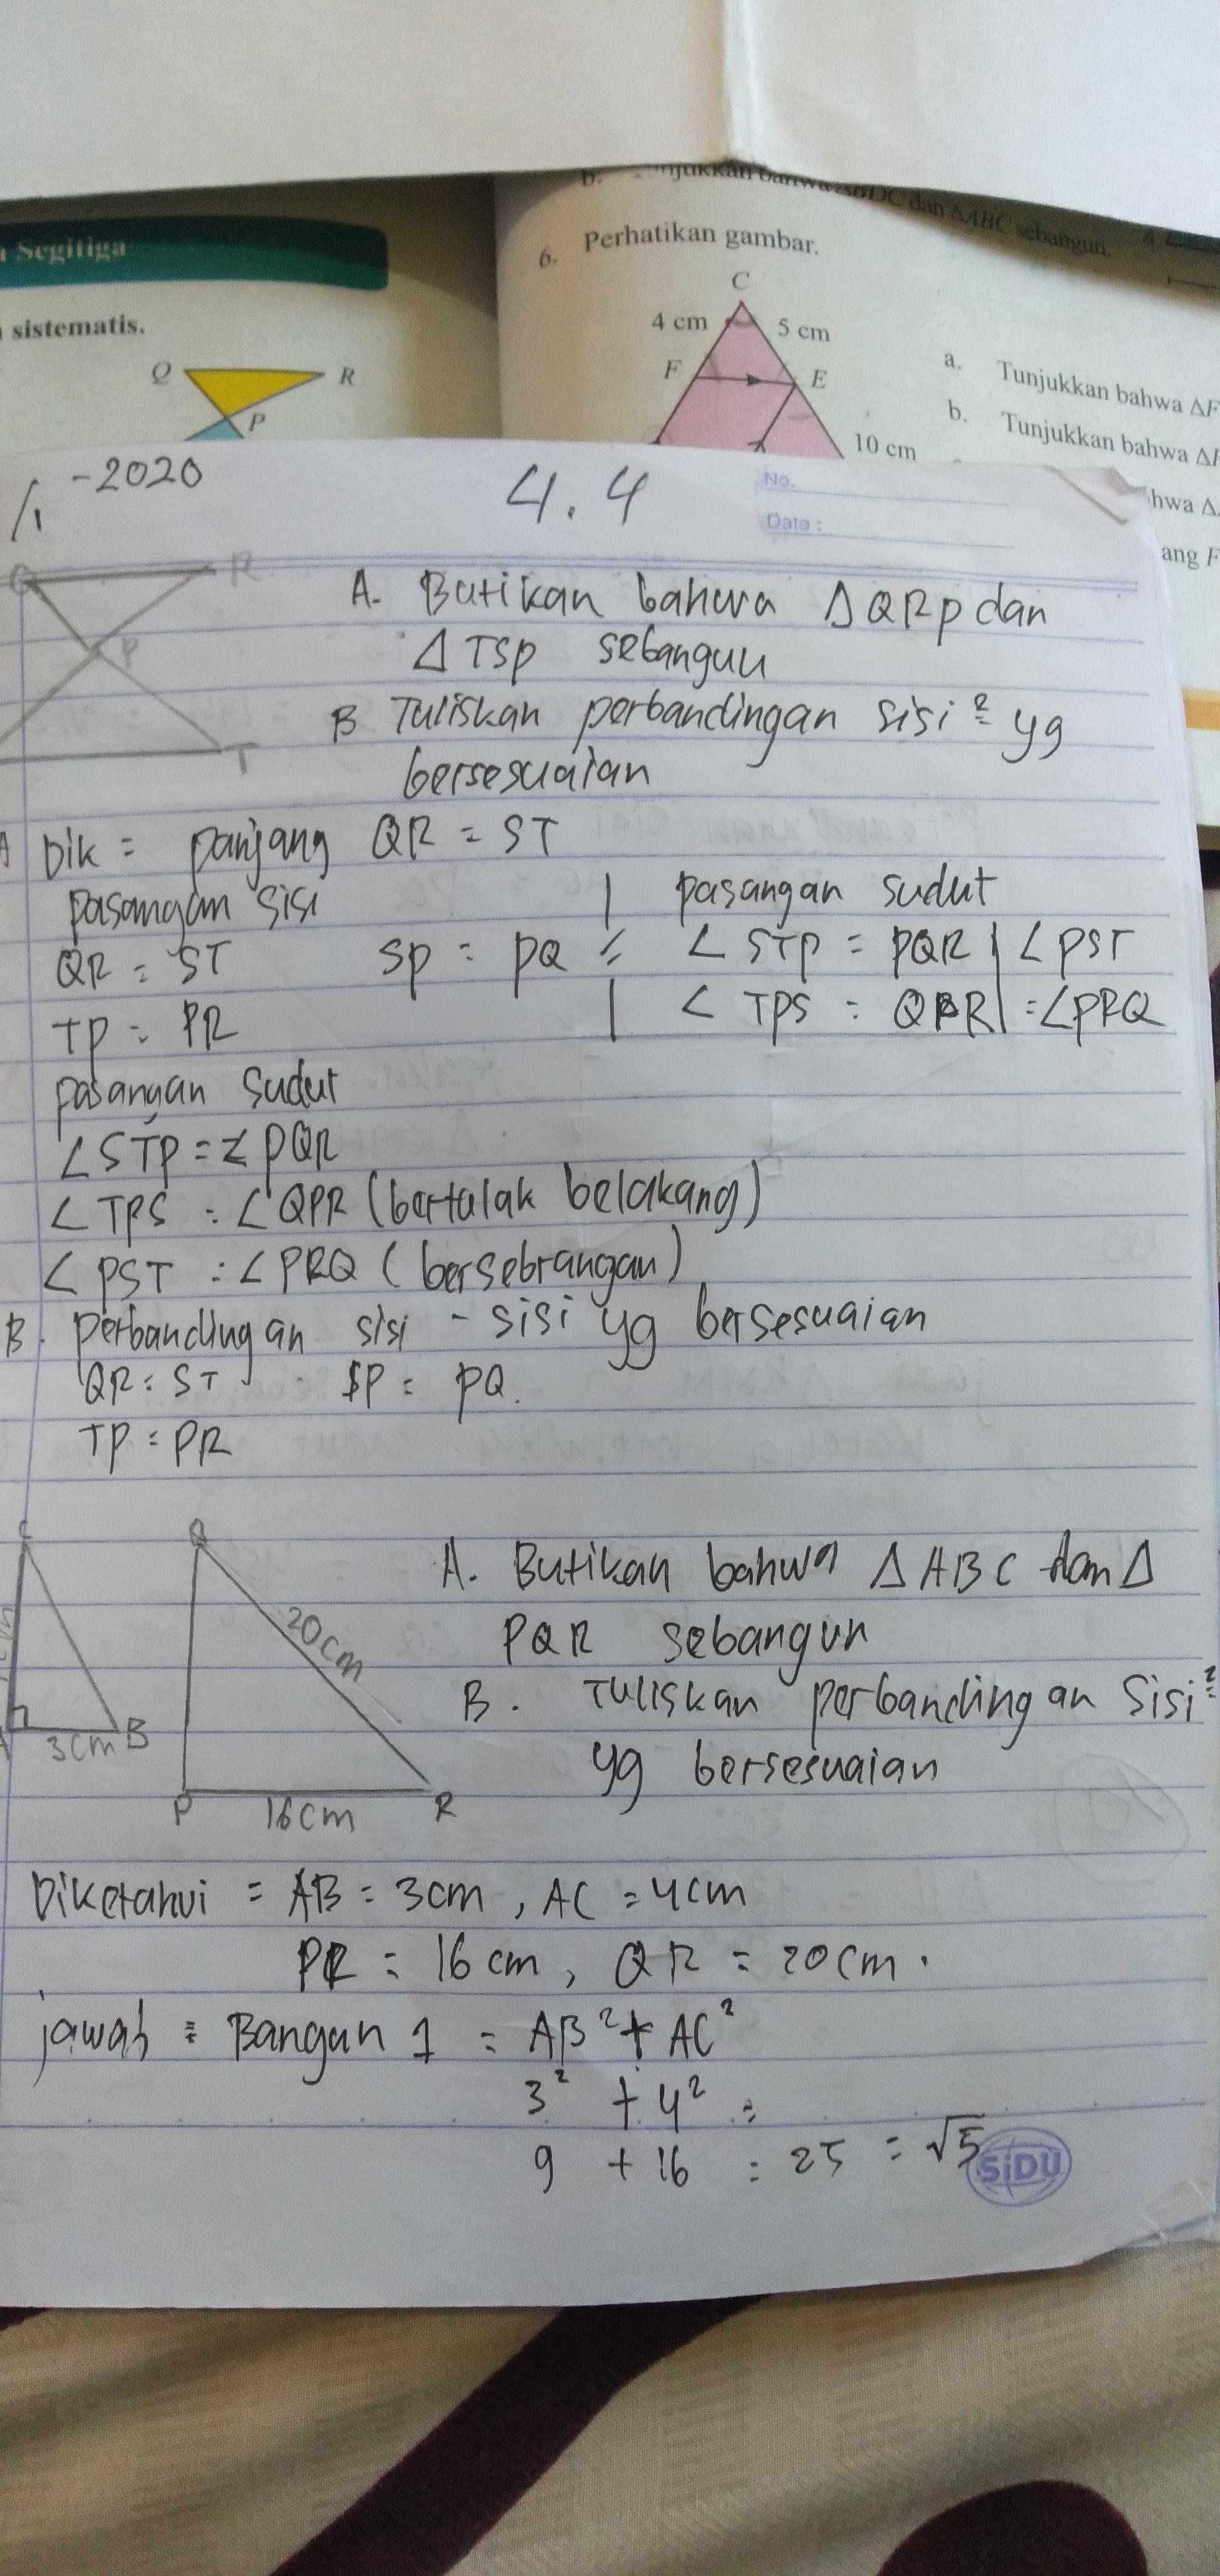 Segitiga
sistematis.
Q
R
P
6. Perhatikan gambar.
dan ΔABC sebangun.
C
4 cm
5 cm
F
E
10 cm
a. Tunjukkan bahwa ΔF
b. Tunjukkan bahwa Δ
hwa Δ
ang F
-2020
4.4
No.
Date :
Q
R
P
T
A. Butikan bahwa Δ QRP dan
Δ TSP sebangun
B Tuliskan perbandingan sisi ² yg
bersesuaian
A Dik = panjang QR = ST
pasangan sisi
QR = ST SP = PQ
TP = PR
pasangan sudut
∠ STP = PQR | ∠ PST
∠ TPS = QPR | = ∠PRQ
pasangan sudut
∠STP = ∠ PQR
∠ TPS = ∠ QPR (bertalak belakang)
∠ PST = ∠ PRQ (bersebrangan)
B. perbandingan sisi - sisi yg bersesuaian
QR = ST SP = PQ.
TP = PR
C
B
3cm
Q
20cm
P
16cm
R
A. Butikan bahwa Δ ABC dan Δ
PQR sebangun
B. Tuliskan perbandingan Sisi²
yg bersesuaian
Diketahui = AB = 3cm , AC = 4cm
PR = 16 cm , QR = 20cm .
jawab = Bangun 1 = AB² + AC²
3² + 4² =
9 + 16 = 25 = √5
SiDU